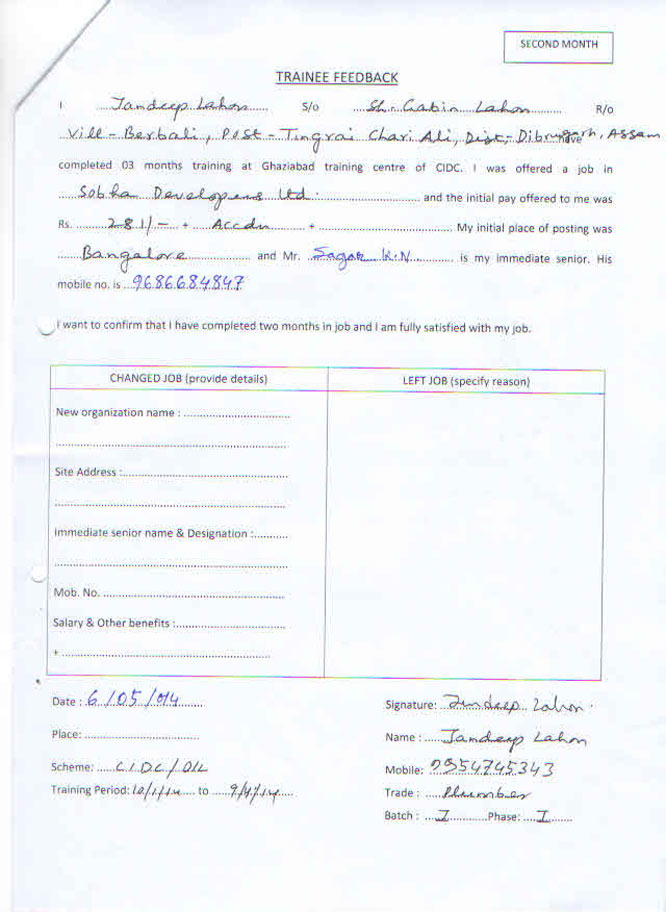 SECOND MONTH
TRAINEE FEEDBACK
I Jandeep Lahon S/o Sh. Gabin Lahon R/o
Vill - Berbali, Post - Tingrai Chari Ali, Dist - Dibrugarh, Assam
completed 03 months training at Ghaziabad training centre of CIDC. I was offered a job in
Sobha Developers Ltd. and the initial pay offered to me was
Rs. 281/- + Accdn + My initial place of posting was
Bangalore and Mr. Sagar K.N is my immediate senior. His
mobile no. is 9686684847
I want to confirm that I have completed two months in job and I am fully satisfied with my job.
CHANGED JOB (provide details)
New organization name :
Site Address :
Immediate senior name & Designation :
Mob. No.
Salary & Other benefits :
+
LEFT JOB (specify reason)
Date : 6/05/014
Place:
Scheme: CIDC/OIL
Training Period: 10/1/14 to 9/4/14
Signature: Jandeep Lahon.
Name : Jandeep Lahon
Mobile: 09954745343
Trade : Plumber
Batch : I Phase: I